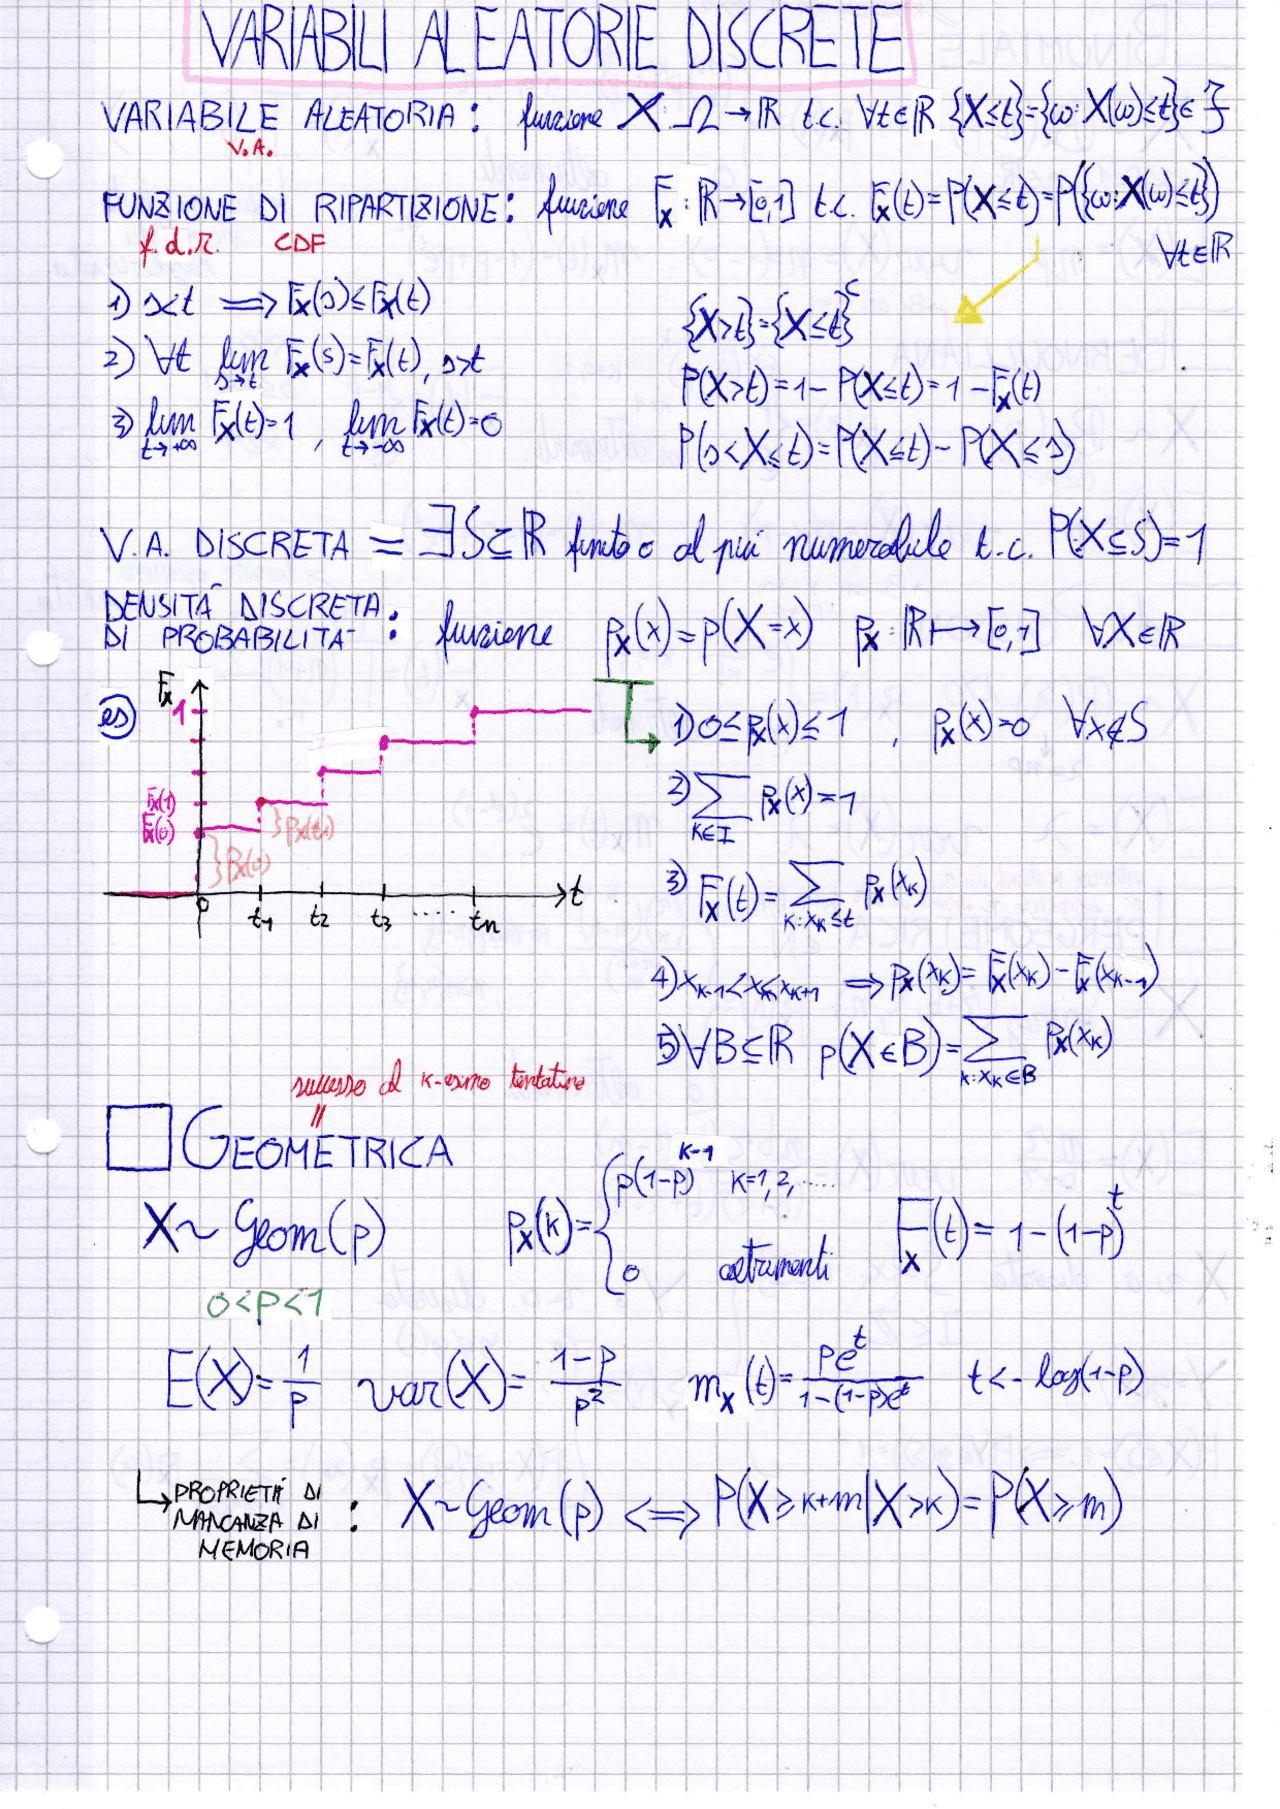 VARIABILI ALEATORIE DISCRETE
VARIABILE ALEATORIA: funzione X: Ω → ℝ t.c. ∀t∈ℝ {X≤t}={ω: X(ω)≤t}∈ ℱ
V.A.
FUNZIONE DI RIPARTIZIONE: funzione F_X: ℝ→[0,1] t.c. F_X(t)=P(X≤t)=P({ω: X(ω)≤t})
f.d.r. CDF ∀t∈ℝ
1) s<t ⟹ F_X(s)≤F_X(t)
2) ∀t lim s→t F_X(s)=F_X(t), s>t
3) lim t→+∞ F_X(t)=1 , lim t→-∞ F_X(t)=0
{X>t}={X≤t}^c
P(X>t)=1-P(X≤t)=1-F_X(t)
P(s<X≤t)=P(X≤t)-P(X≤s)
V.A. DISCRETA = ∃S⊆ℝ finito o al più numerabile t.c. P(X⊆S)=1
DENSITÀ DISCRETA
DI PROBABILITÀ : funzione p_X(x)=p(X=x) p_X: ℝ⟼[0,1] ∀X∈ℝ
es) F_X
1
F_X(1)
F_X(0)
}p_X(t_1)
}p_X(0)
0 t_1 t_2 t_3 ..... t_n t
1) 0≤p_X(x)≤1 , p_X(x)=0 ∀x∉S
2) ∑ K∈I p_X(x)=1
3) F_X(t)=∑ k:x_k≤t p_X(x_k)
4) x_{k-1}<x_k≤x_{k+1} ⟹ p_X(x_k)=F_X(x_k)-F_X(x_{k-1})
5) ∀B⊆ℝ p(X∈B)=∑ k:x_k∈B p_X(x_k)
successo al k-esimo tentativo
=
GEOMETRICA
X~Geom(p) p_X(k)={ p(1-p)^{k-1} k=1,2,.....
0 altrimenti
F_X(t)=1-(1-p)^t
0<p<1
E(X)=1/p var(X)=(1-p)/p^2 m_X(t)=pe^t/(1-(1-p)e^t) t<-log(1-p)
PROPRIETÀ DI
MANCANZA DI
MEMORIA
: X~Geom(p) ⟺ P(X≥k+m|X>k)=P(X≥m)